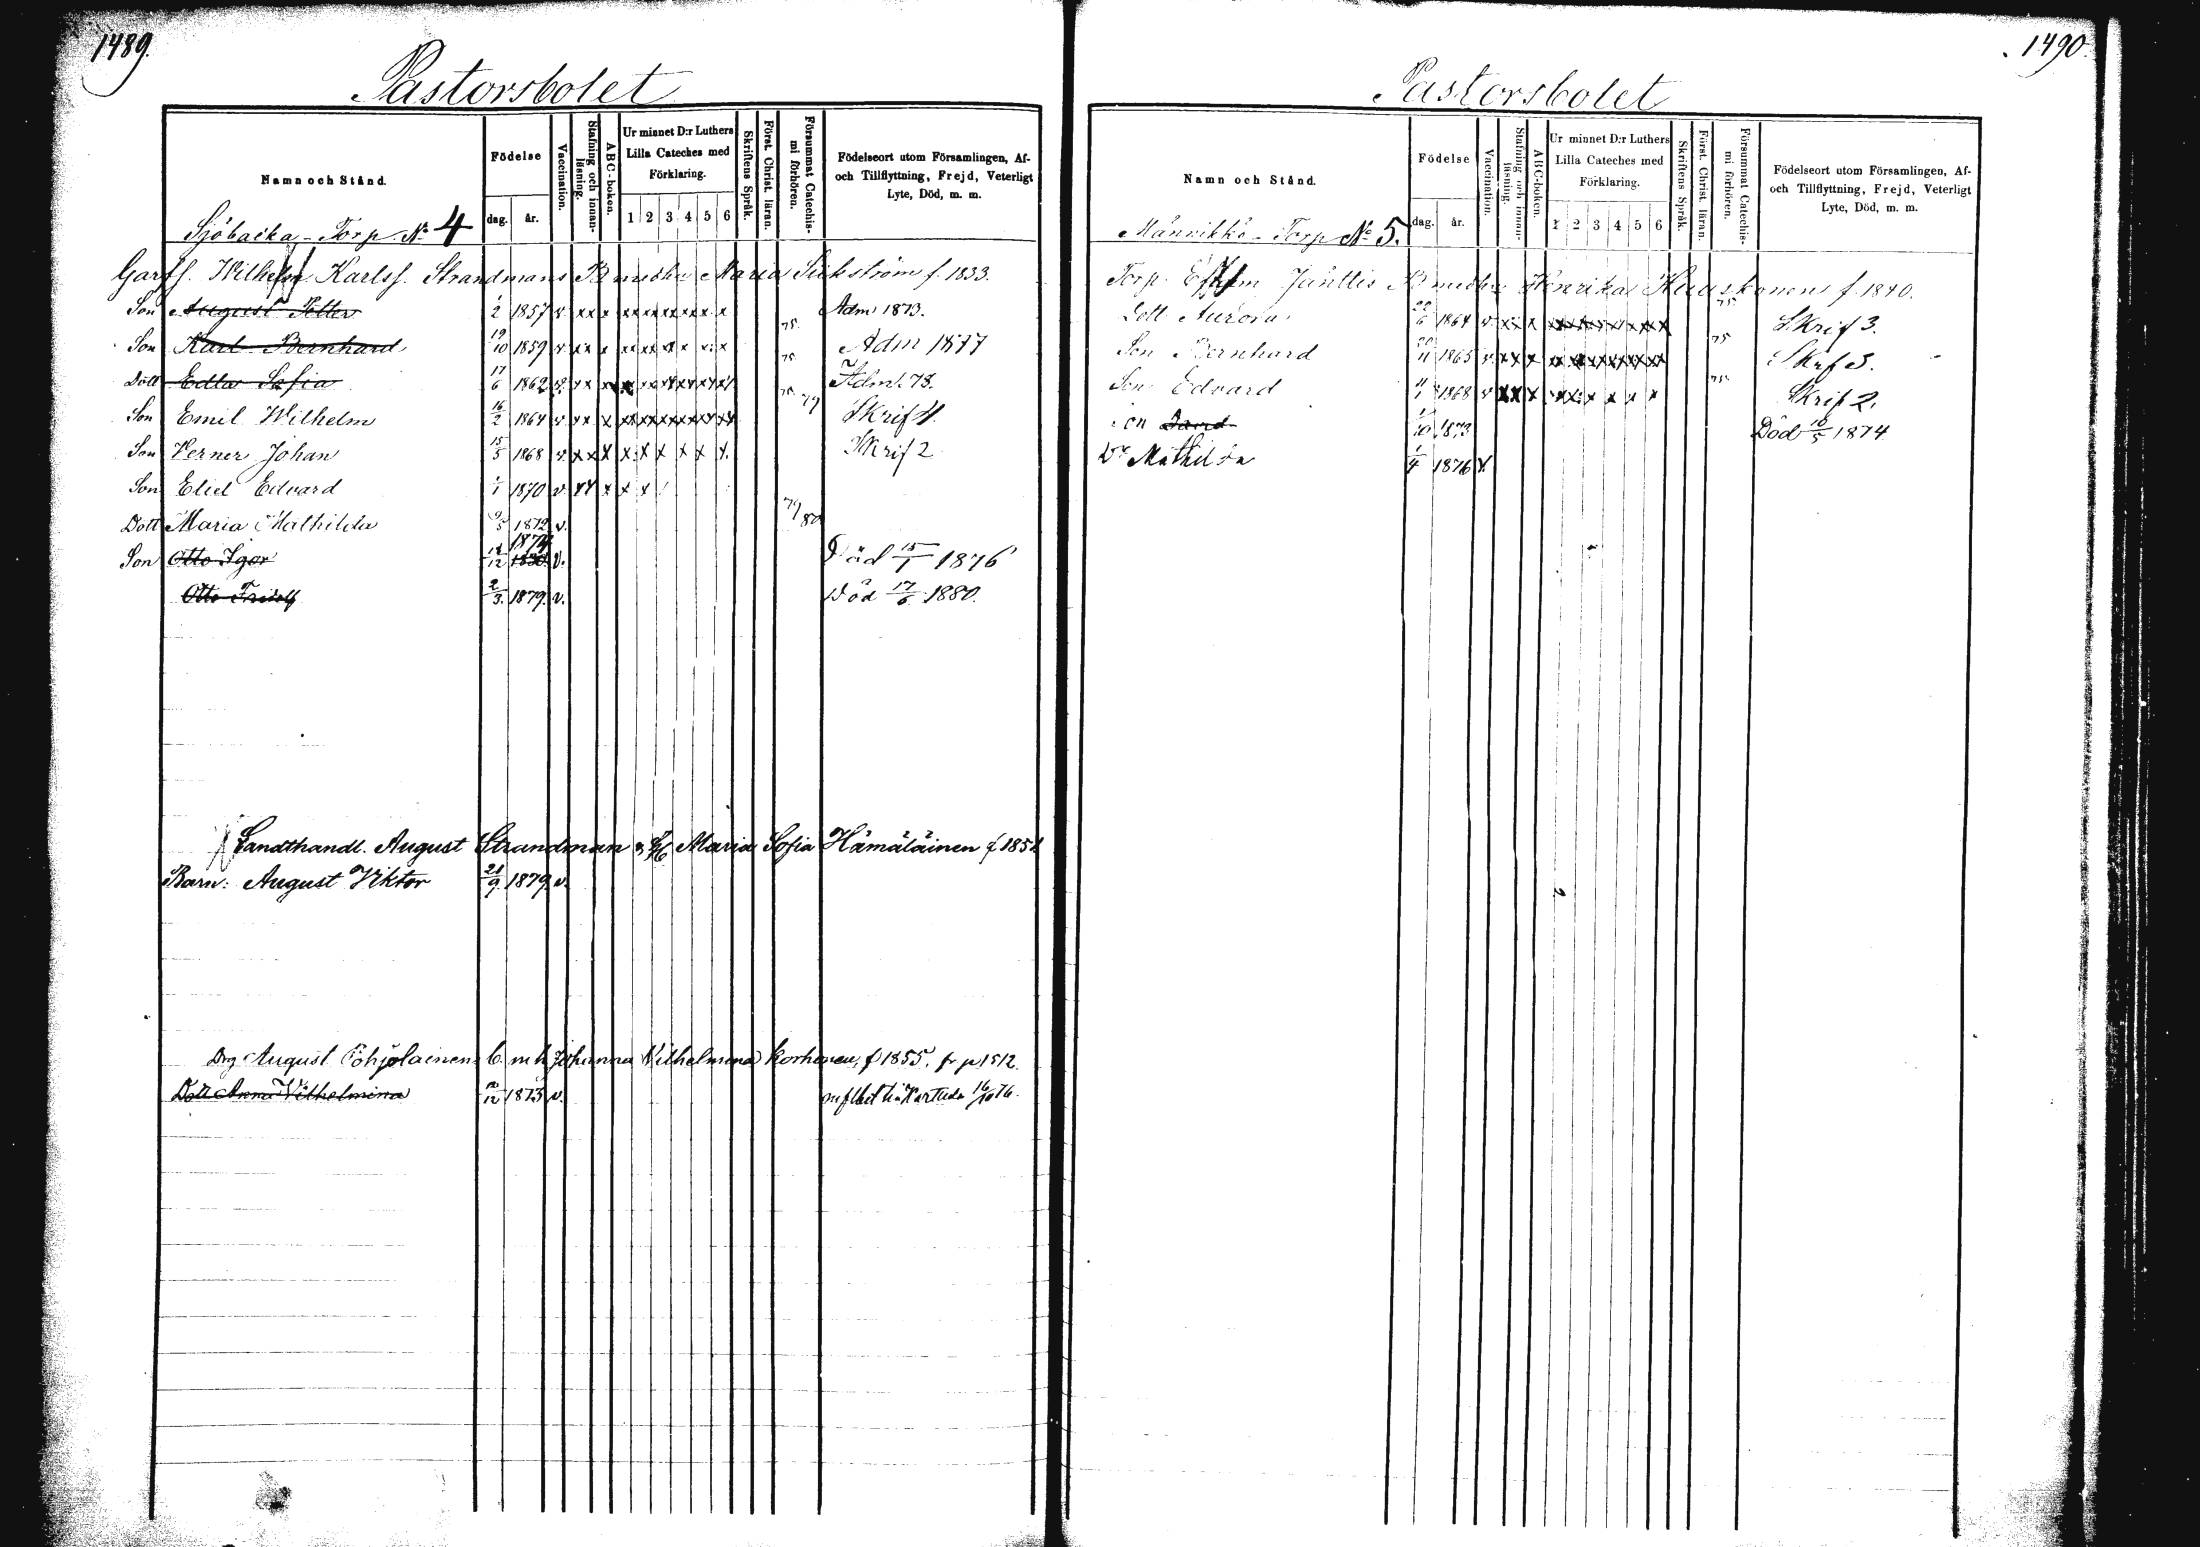 1489.
Pastorsbolet
Namn och Stånd.
Födelse
dag.
år.
Vaccination.
Stafning och innan-
läsning.
ABC-boken.
Ur minnet D:r Luthers
Lilla Cateches med
Förklaring.
1 2 3 4 5 6
Skriftens Språk.
Först. Christ. läran.
Försummat Catechis-
mi förhören.
Födelseort utom Församlingen, Af-
och Tillflyttning, Frejd, Veterligt
Lyte, Död, m. m.
Sjöbacka - Torp No 4
Garfs. Wilhelm Karlss. Strandmans B med h Maria f. 1833.
Son August Petter 1/2 1857 v. xx x xxxxxxxx x Adm 1873.
Son Karl Bernhard 19/10 1859 v. xx x xx xx xx x x x 75. Adm 1877
Dott Edla Sofia 17/6 1862 v. xx x x xx xx xx xx 75. Adm. 78.
Son Emil Wilhelm 16/2 1864 v. xx x xxxxxxxxxx 75. 77 Skrif 4.
Son Verner Johan 15/5 1868 v. xx x x x x x x x. Skrif 2
Son Eliel Edvard 1/1 1870 v. xx x x x
Dott Maria Mathilda 9/5 1872 v. 79/80
1874
Son Otto Igor 12/12 1830. v. Död 15/1 1876
Otto Fridolf 2/3. 1879. v. Död 17/6 1880.
Landthandl. August Strandman & H Maria Sofia Hämäläinen f 1854
Barn: August Viktor 21/9 1879 v.
Drg August Pohjolainen b. m h Johanna Vilhelmina Korhonen, f 1855. fr p 1512.
Dott Anna Vilhelmina 12/12 1875 v. Karttula 16/10 76.
1490.
Pastorsbolet
Namn och Stånd.
Födelse
dag.
år.
Vaccination.
Stafning och innan-
läsning.
ABC-boken.
Ur minnet D:r Luthers
Lilla Cateches med
Förklaring.
1 2 3 4 5 6
Skriftens Språk.
Först. Christ. läran.
Försummat Catechis-
mi förhören.
Födelseort utom Församlingen, Af-
och Tillflyttning, Frejd, Veterligt
Lyte, Död, m. m.
Männikkö - Torp No 5.
Torp. Efraim Jänttis B med h Henrika Hauskonen f. 1840.
Dott Aurora 22/6 1864 v. xx x xxxxxxxxx 75 Skrif 3.
Son Bernhard 20/11 1865 v. xx x xxxxxxxxx 75 Skrf 3.
Son Edvard 11/1 1868 v xx x xx x x x x 75. Skrif 2.
Son David 1873 Död 16/5 1874
Dr Mathilda 1/4 1876 v.